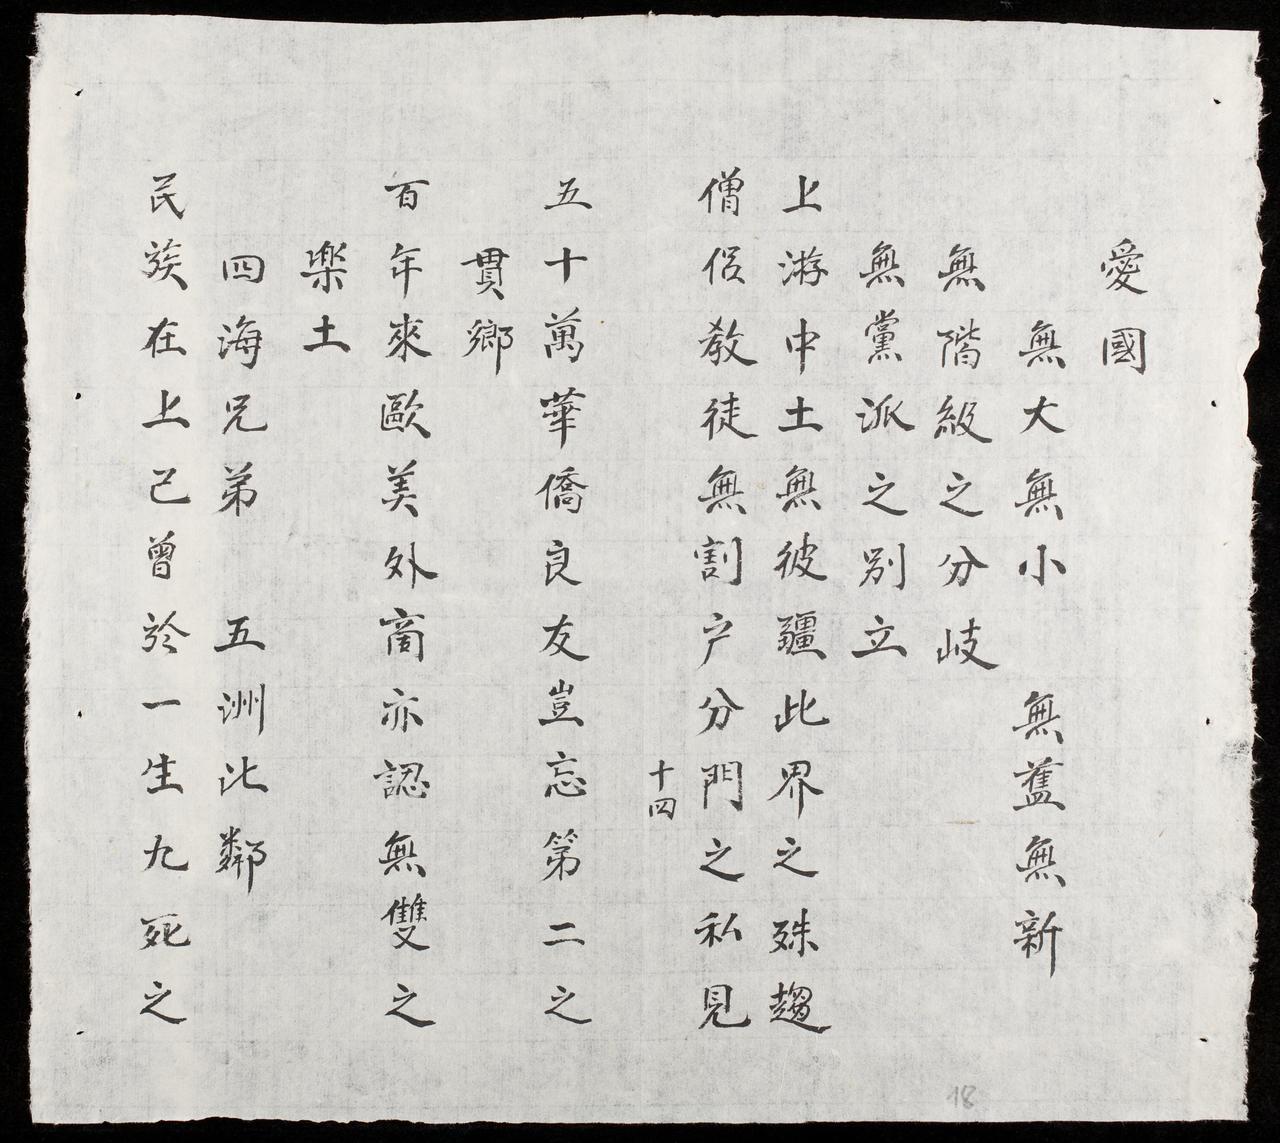 愛國
無大無小　無舊無新
無階級之分岐
無黨派之别立
上游中土無彼疆此界之殊趨
僧侣教徒無割户分門之私見
十四
五十萬華僑良友豈忘第二之
貫鄉
百年來歐美外商亦認無雙之
樂土
四海兄弟　五洲比鄰
民族在上已曾於一生九死之
18